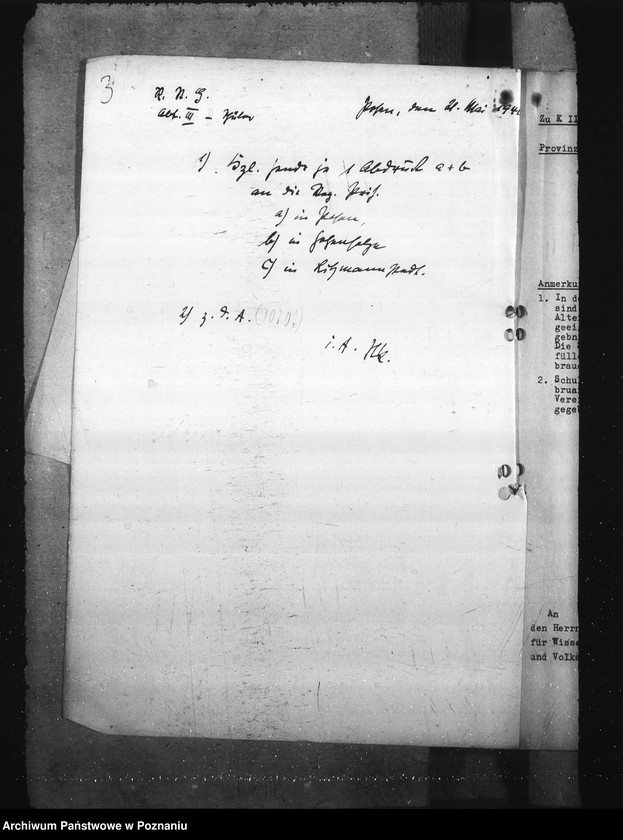 3
Abt. III
Posen, den 21. Mai 194
1) . Bgl. sende je 1 Abdruck a + b
an die Reg. Präs.
a) in Posen,
b) in Hohensalza
c) in Litzmannstadt.
2) z. d. A.
i. A.
Zu K II
Provinz
Anmerku
1. In d
sind
Alte
geei
gebn
Die
fülle
brau
2. Schul
brua
Vere
gege
An
den Herrn
für Wisse
und Volk
Archiwum Państwowe w Poznaniu